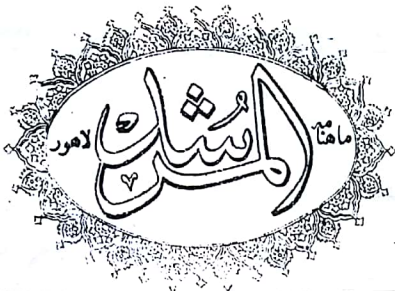 ماہنامہ المرشد لاہور